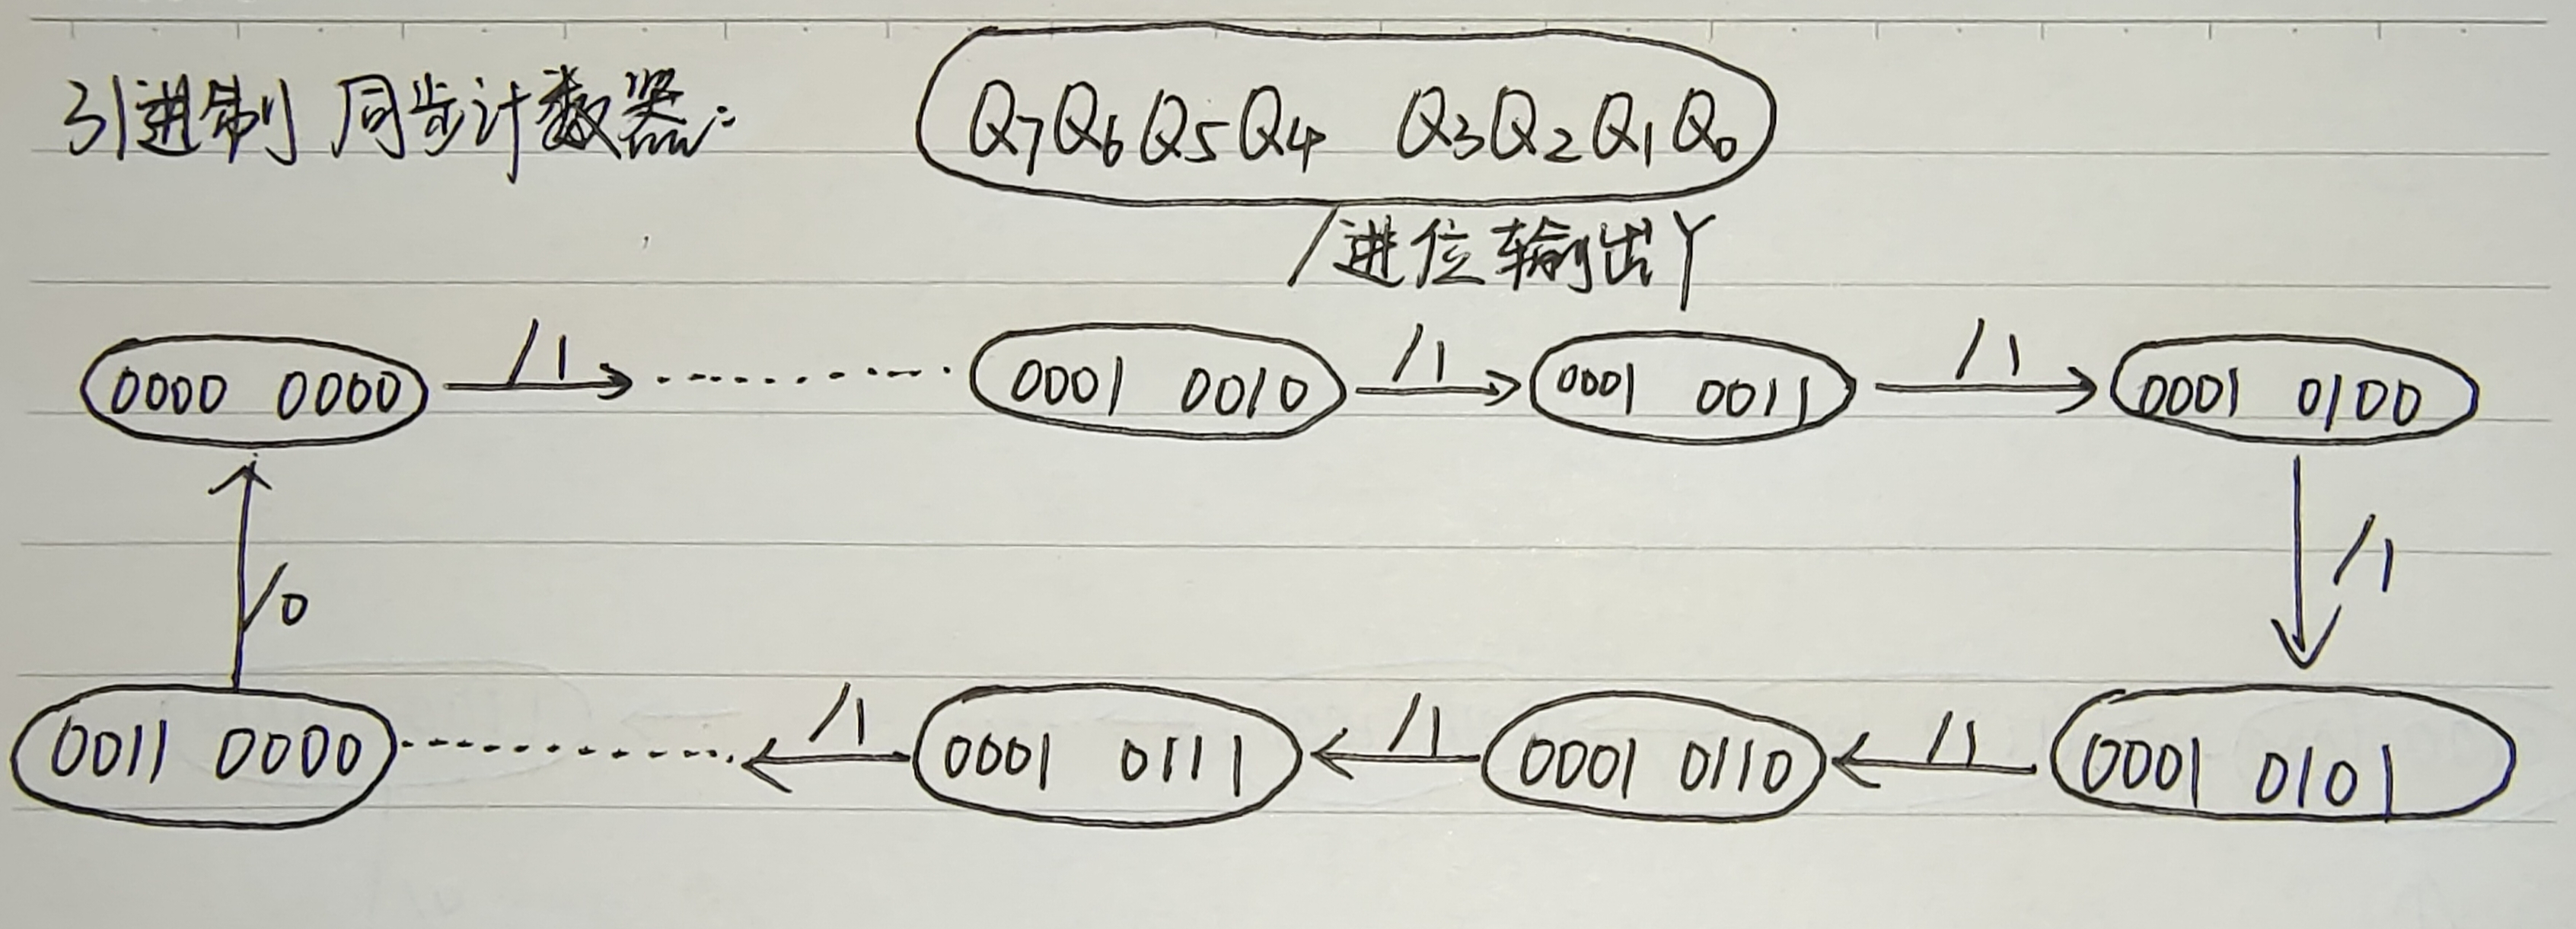 31进制 同步计数器: Q7Q6Q5Q4 Q3Q2Q1Q0
/进位输出Y
0000 0000 /1 ......... 0001 0010 /1 0001 0011 /1 0001 0100
/0 /1
0011 0000 ......... /1 0001 0111 /1 0001 0110 /1 0001 0101